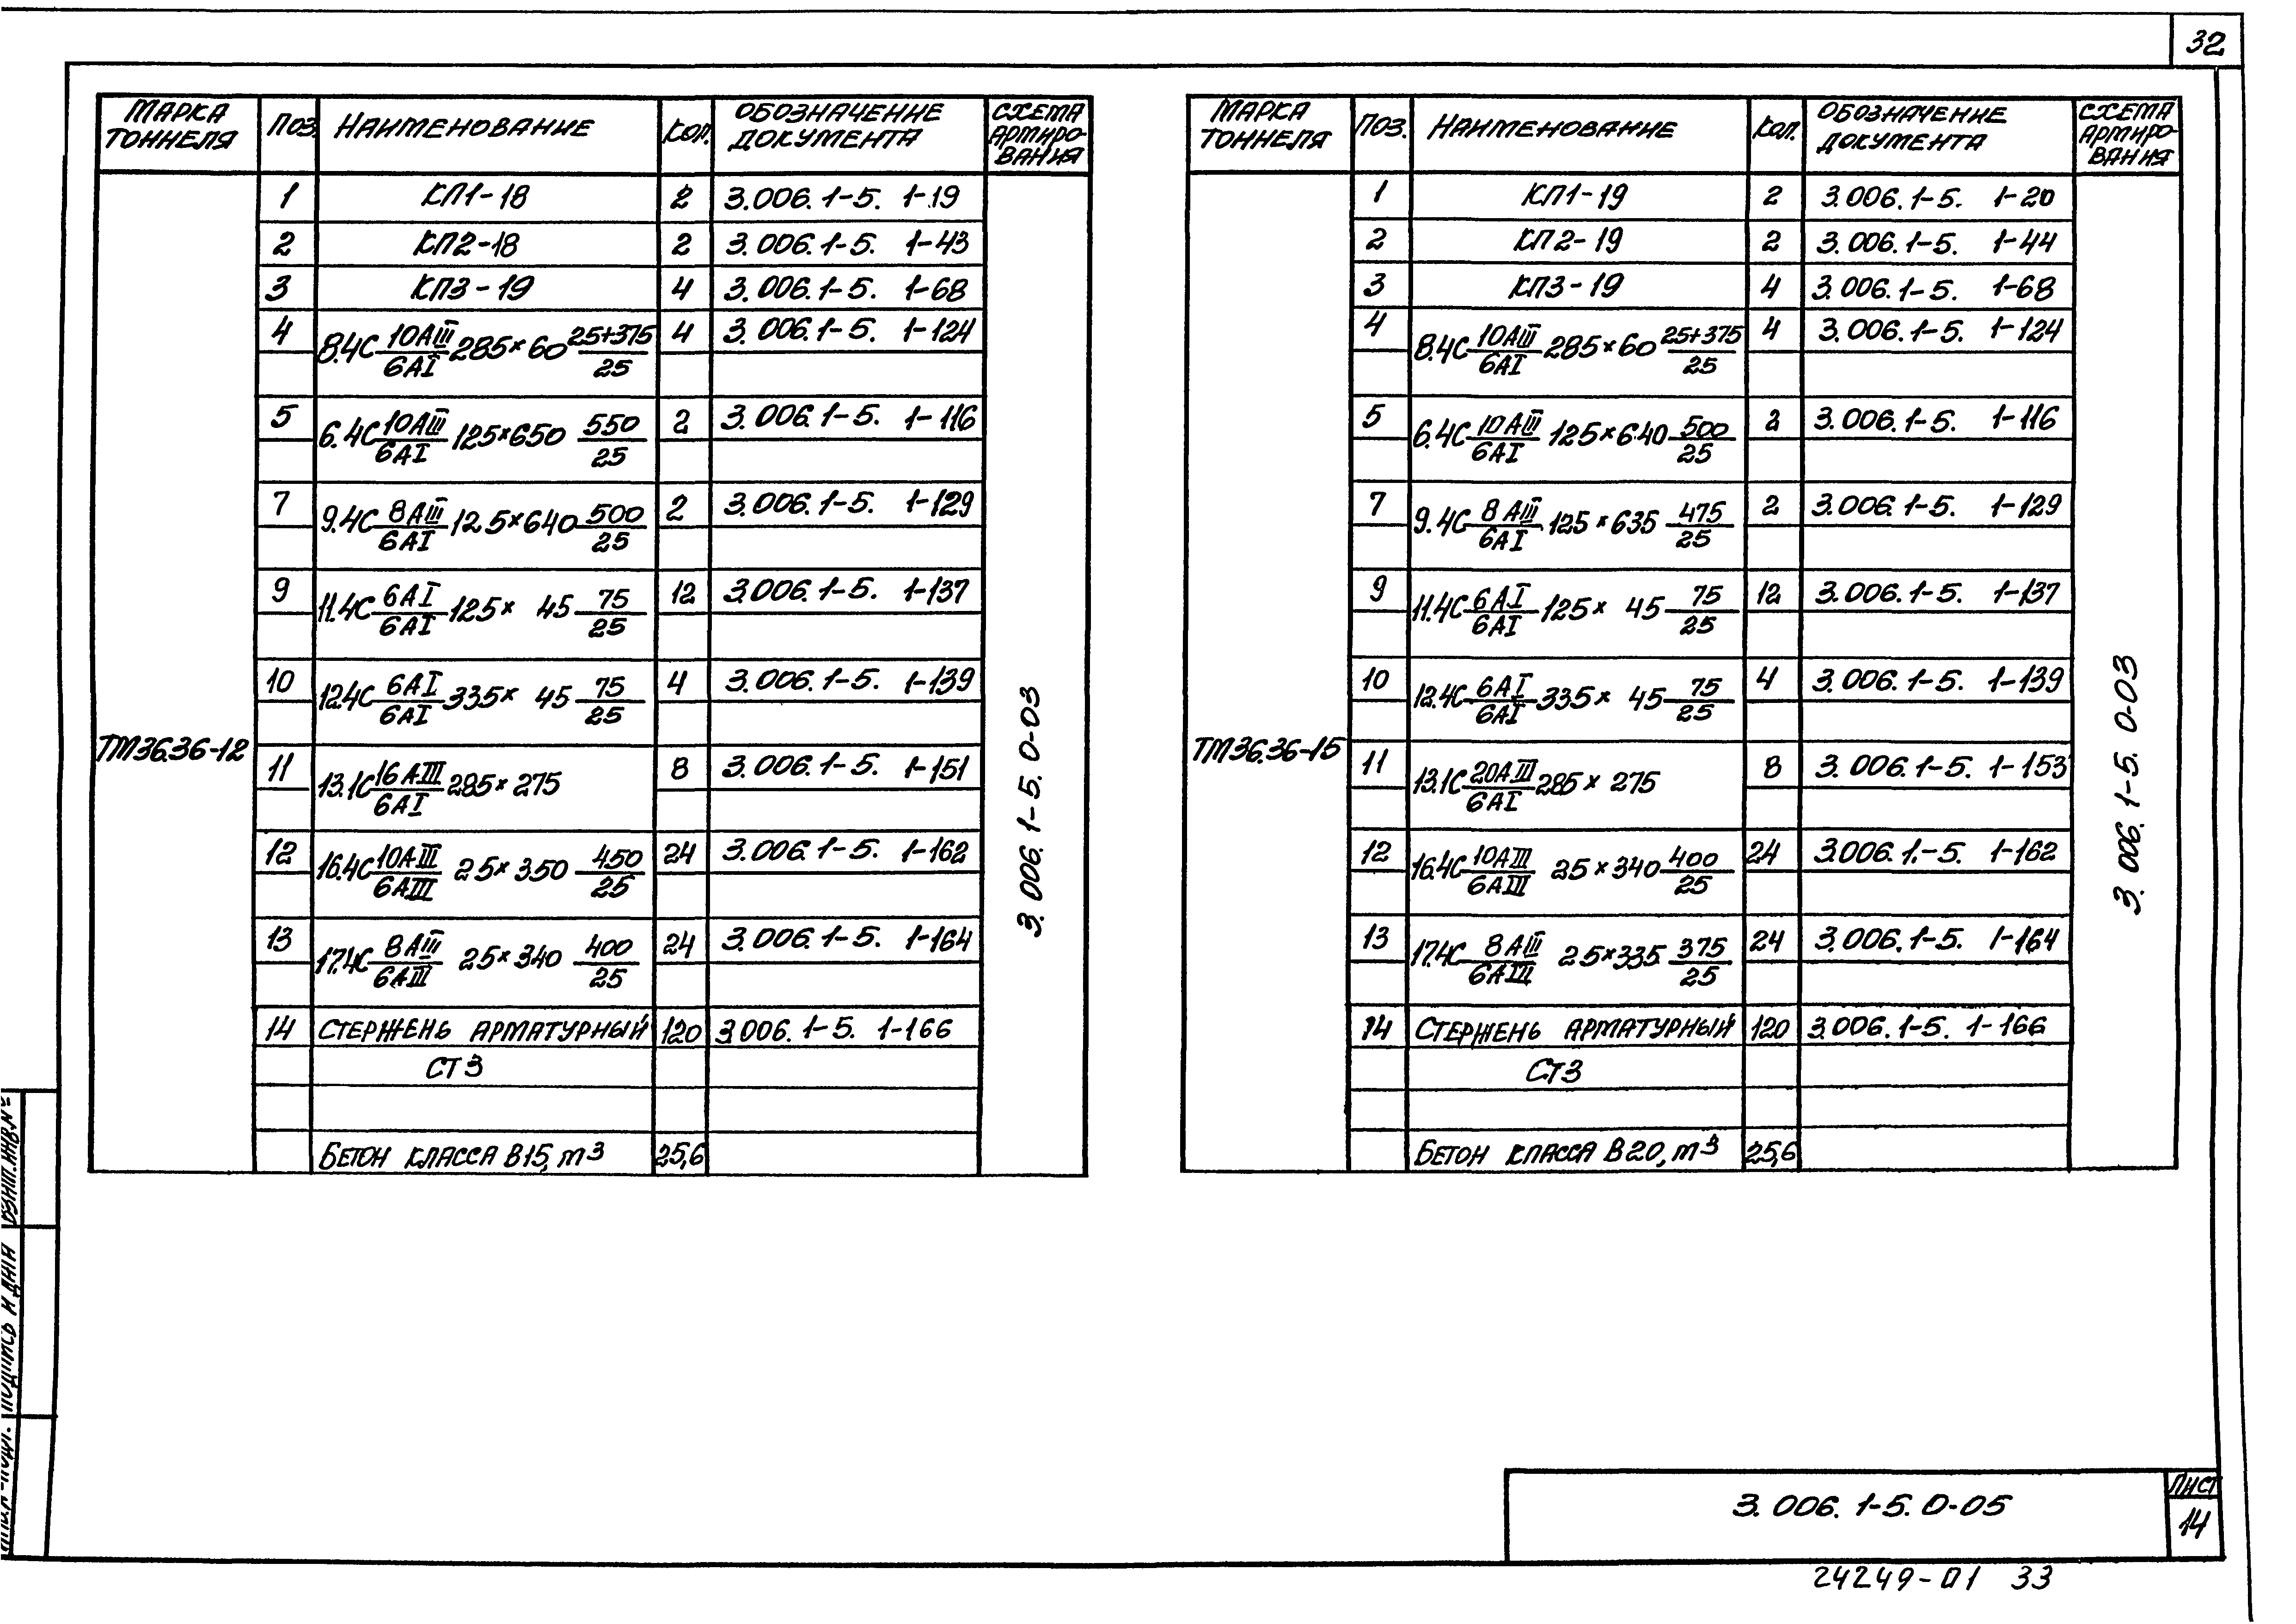 32
МАРКА ТОННЕЛЯ ПОЗ. НАИМЕНОВАНИЕ КОЛ. ОБОЗНАЧЕНИЕ ДОКУМЕНТА СХЕМА АРМИРО-ВАНИЯ
ТМ36.36-12
1 КП1-18 2 3.006.1-5. 1-19
2 КП2-18 2 3.006.1-5. 1-43
3 КП3-19 4 3.006.1-5. 1-68
4 8.4С 10АIII/6АI 285×60 25+375/25 4 3.006.1-5. 1-124
5 6.4С 10АIII/6АI 125×650 550/25 2 3.006.1-5. 1-116
7 9.4С 8АIII/6АI 125×640 500/25 2 3.006.1-5. 1-129
9 11.4С 6АI/6АI 125× 45 75/25 12 3.006.1-5. 1-137
10 12.4С 6АI/6АI 335× 45 75/25 4 3.006.1-5. 1-139
11 13.1С 16АIII/6АI 285×275 8 3.006.1-5. 1-151
12 16.4С 10АIII/6АIII 25×350 450/25 24 3.006.1-5. 1-162
13 17.4С 8АIII/6АIII 25×340 400/25 24 3.006.1-5. 1-164
14 СТЕРЖЕНЬ АРМАТУРНЫЙ 120 3.006.1-5. 1-166
СТ3
БЕТОН КЛАССА В15, м³ 25,6
3.006.1-5.0-03
МАРКА ТОННЕЛЯ ПОЗ. НАИМЕНОВАНИЕ КОЛ. ОБОЗНАЧЕНИЕ ДОКУМЕНТА СХЕМА АРМИРО-ВАНИЯ
ТМ36.36-15
1 КП1-19 2 3.006.1-5. 1-20
2 КП2-19 2 3.006.1-5. 1-44
3 КП3-19 4 3.006.1-5. 1-68
4 8.4С 10АIII/6АI 285×60 25+375/25 4 3.006.1-5. 1-124
5 6.4С 10АIII/6АI 125×640 500/25 2 3.006.1-5. 1-116
7 9.4С 8АIII/6АI 125×635 475/25 2 3.006.1-5. 1-129
9 11.4С 6АI/6АI 125× 45 75/25 12 3.006.1-5. 1-137
10 12.4С 6АI/6АI 335× 45 75/25 4 3.006.1-5. 1-139
11 13.1С 20АIII/6АI 285×275 8 3.006.1-5. 1-153
12 16.4С 10АIII/6АIII 25×340 400/25 24 3.006.1-5. 1-162
13 17.4С 8АIII/6АIII 25×335 375/25 24 3.006.1-5. 1-164
14 СТЕРЖЕНЬ АРМАТУРНЫЙ 120 3.006.1-5. 1-166
СТ3
БЕТОН КЛАССА В20, м³ 25,6
3.006.1-5.0-03
ПОДПИСЬ И ДАТА
3.006.1-5.0-05
ЛИСТ
14
24249-01 33